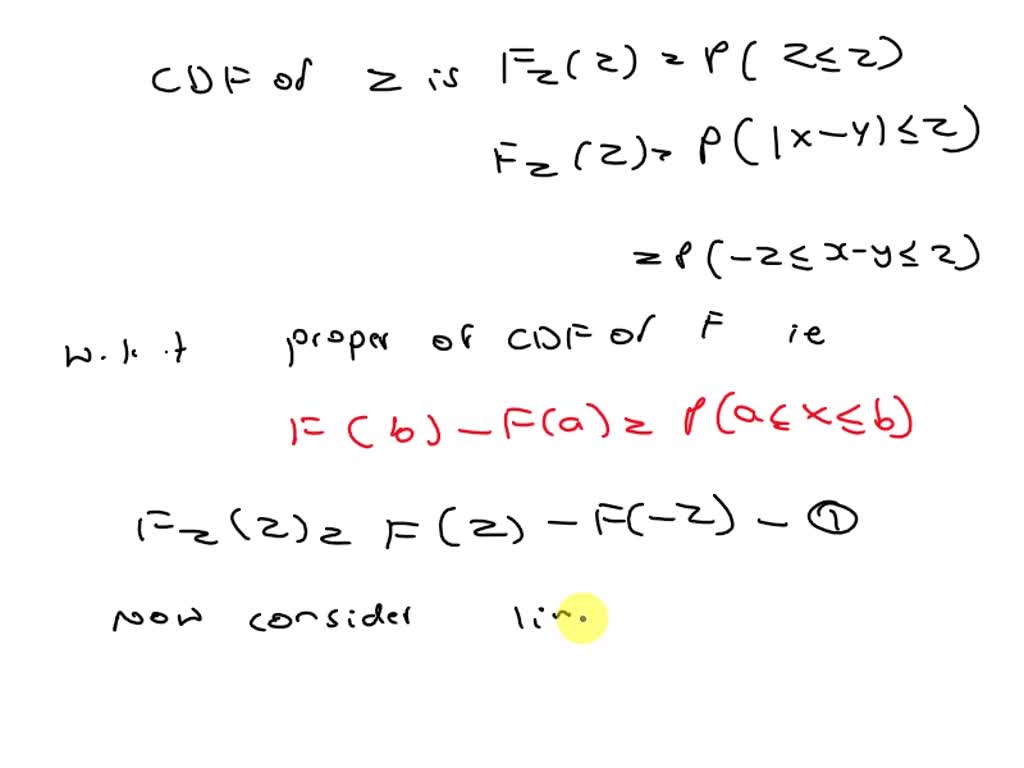 CDF of Z is F_Z(Z) = P(Z≤Z)
F_Z(Z) = P(|X-Y|≤Z)
= P(-Z≤X-Y≤Z)
w.k.t proper of CDF of F ie
F(b) - F(a) = P(a≤X≤b)
F_Z(Z) = F(Z) - F(-Z) - ①
Now consider lim